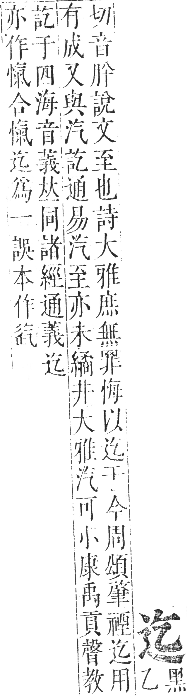 迄
黑
乙
切音肸說文至也詩大雅庶無罪悔以迄于今周頌肇禋迄用
有成又與汽訖通易汽至亦未繘井大雅汽可小康禹貢聲教
訖于四海音義丛同諸經通義迄
亦作愾合愾迄爲一誤本作